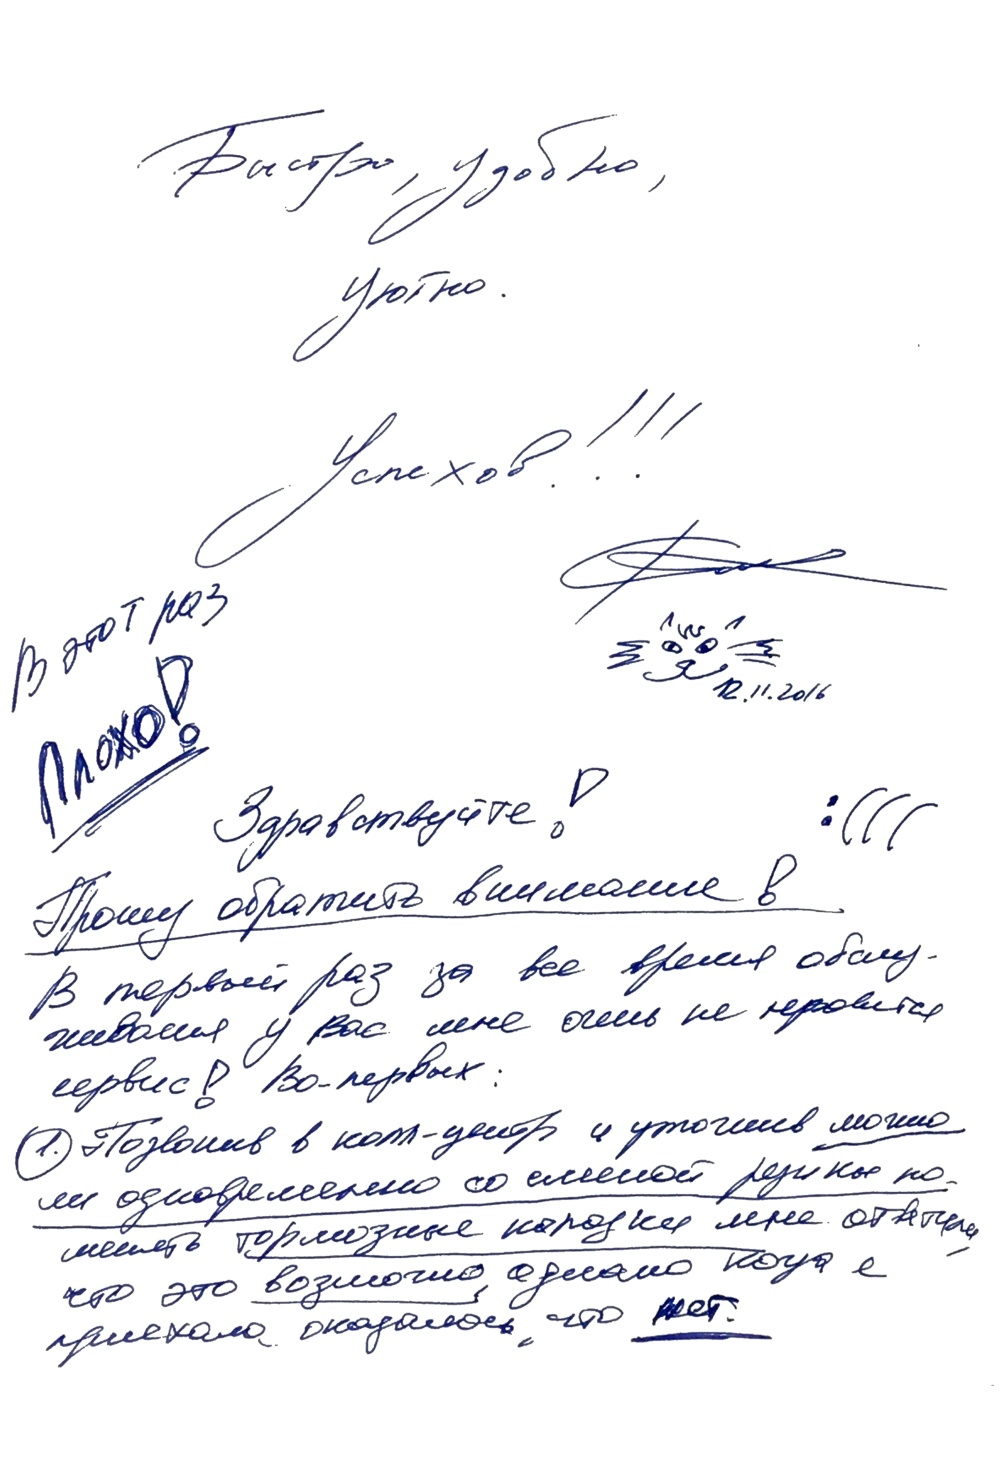 Быстро, удобно,
уютно.
Успехов!!!
12.11.2016
В этот раз
Плохо!
Здравствуйте! :(((
Прошу обратить внимание!
В первый раз за все время обслу-
живания у Вас мне очень не нравится
сервис! Во-первых:
1. Позвонив в колл-центр и уточнив можно
ли одновременно со сменой резины по-
менять тормозные колодки мне ответили,
что это возможно, однако когда я
приехала оказалось, что нет.